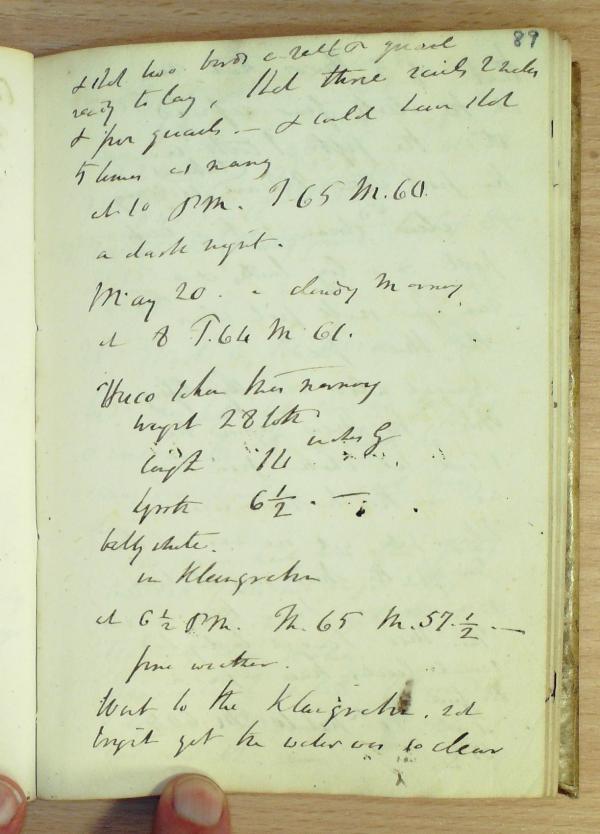 89
& shot two birds a rail & a quail
ready to lay, shot three rails 2 males
& four quails — & could have shot
5 times as many
at 10 PM. T 65 M. 60.
a dark night.
May 20. a cloudy Morning
at 8 T. 64 M 61.
Huco taken this morning
weight 28 loth
length 14 inches
girth 6 1/2 . —
belly white.
in Kleingraben
at 6 1/2 PM. Th. 65 M. 57. 1/2 —
fine weather.
Went to the Kleingraben. not
the water was so clear